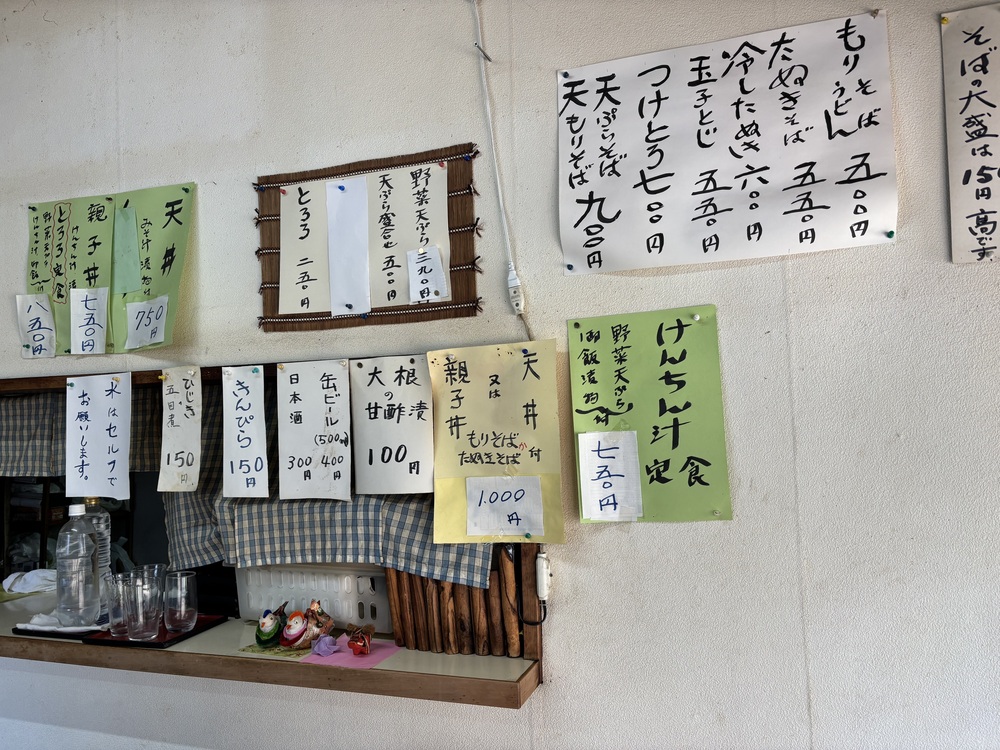 そばの大盛は
高です
もり そば うどん 五〇〇円
たぬきそば 五五〇円
冷したぬき 六〇〇円
玉子とじ 五五〇円
つけとろ 七〇〇円
天ぷらそば
天もりそば 九〇〇円
野菜天ぷら 三九〇円
天ぷら盛合せ 五五〇円
とろろ 二五〇円
天丼
みそ汁漬物付
750円
親子丼
七五〇円
けんちん汁
とろろ定食
八五〇円
けんちん汁
定食
野菜天ぷら
御飯 漬物 付
七五〇円
天丼
又は
親子丼
もりそばか
たぬきそば 付
1.000円
大根の甘酢漬
100円
缶ビール
(500㎖)
400円
日本酒
300円
きんぴら
150円
ひじき
五目煮
150円
水はセルフで
お願いします。